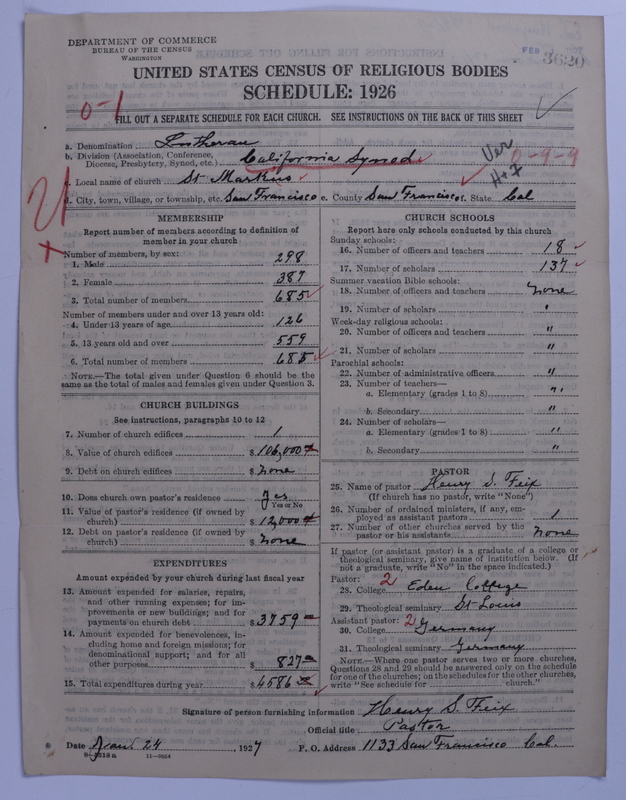 DEPARTMENT OF COMMERCE
BUREAU OF THE CENSUS
WASHINGTON
FEB
3620
UNITED STATES CENSUS OF RELIGIOUS BODIES
SCHEDULE: 1926
0-1
FILL OUT A SEPARATE SCHEDULE FOR EACH CHURCH. SEE INSTRUCTIONS ON THE BACK OF THIS SHEET
a. Denomination Lutheran
b. Division (Association, Conference, Diocese, Presbytery, Synod, etc.) California Synod
Ver
0-9-9
c. Local name of church St Markus
d. City, town, village, or township, etc. San Francisco e. County San Francisco f. State Cal
MEMBERSHIP
Report number of members according to definition of
member in your church
Number of members, by sex:
1. Male 298
2. Female 387
3. Total number of members 685
Number of members under and over 13 years old:
4. Under 13 years of age 126
5. 13 years old and over 559
6. Total number of members 685
NOTE.—The total given under Question 6 should be
same as the total of males and females given under Question 3.
CHURCH BUILDINGS
See instructions, paragraphs 10 to 12
7. Number of church edifices 1
8. Value of church edifices $ 106,000
9. Debt on church edifices $ none
10. Does church own pastor's residence Yes
Yes or No
11. Value of pastor's residence (if owned by
church) $ 12,000
12. Debt on pastor's residence (if owned by
church) $ none
EXPENDITURES
Amount expended by your church during last fiscal year
13. Amount expended for salaries, repairs,
and other running expenses; for im-
provements or new buildings; and for
payments on church debt $ 3759
14. Amount expended for benevolences, in-
cluding home and foreign missions; for
denominational support; and for all
other purposes $ 827
15. Total expenditures during year $ 4586
CHURCH SCHOOLS
Report here only schools conducted by this church
Sunday schools:
16. Number of officers and teachers 18
17. Number of scholars 137
Summer vacation Bible schools:
18. Number of officers and teachers none
19. Number of scholars "
Week-day religious schools:
20. Number of officers and teachers "
21. Number of scholars "
Parochial schools:
22. Number of administrative officers "
23. Number of teachers—
a. Elementary (grades 1 to 8) "
b. Secondary "
24. Number of scholars—
a. Elementary (grades 1 to 8) "
b. Secondary "
PASTOR
25. Name of pastor Henry S. Feix
(If church has no pastor, write "None")
26. Number of ordained ministers, if any, em-
ployed as assistant pastors 1
27. Number of other churches served by the
pastor or his assistants none
If pastor (or assistant pastor) is a graduate of a college or
theological seminary, give name of institution below. (If
not a graduate, write "No" in the space indicated.)
Pastor: 2
28. College Eden College
29. Theological seminary St Louis
Assistant pastor: 2
30. College Germany
31. Theological seminary Germany
NOTE.—Where one pastor serves two or more churches,
Questions 28 and 29 should be answered only on the schedule
for one of the churches; on the schedules for the other churches,
write "See schedule for church."
Signature of person furnishing information Henry S. Feix
Official title Pastor
Date Jan 24, 1927 P. O. Address 1133 San Francisco Cal.
8-5318a 11-9864